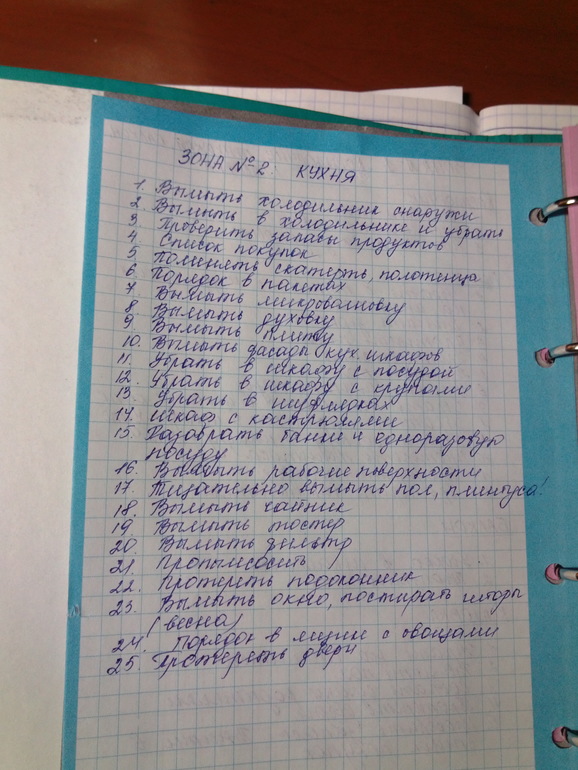 ЗОНА №2. КУХНЯ
1. Вымыть холодильник снаружи
2. Вымыть в холодильнике и убрать
3. Проверить запасы продуктов
4. Список покупок
5. Поменять скатерть, полотенца
6. Порядок в пакетах
7. Вымыть микроволновку
8. Вымыть духовку
9. Вымыть плиту
10. Вымыть фасады кух. шкафов
11. Убрать в шкафу с посудой
12. Убрать в шкафу с крупами
13. Убрать в шуфлядках
14. Шкаф с кастрюлями
15. Разобрать банки и одноразовую
посуду
16. Вымыть рабочие поверхности
17. Тщательно вымыть пол, плинтуса!
18. Вымыть чайник
19. Вымыть тостер
20. Вымыть фильтр
21. Пропылесосить
22. Протереть подоконник
23. Вымыть окно, постирать шторы
(весна)
24. Порядок в ящике с овощами
25. Протереть двери